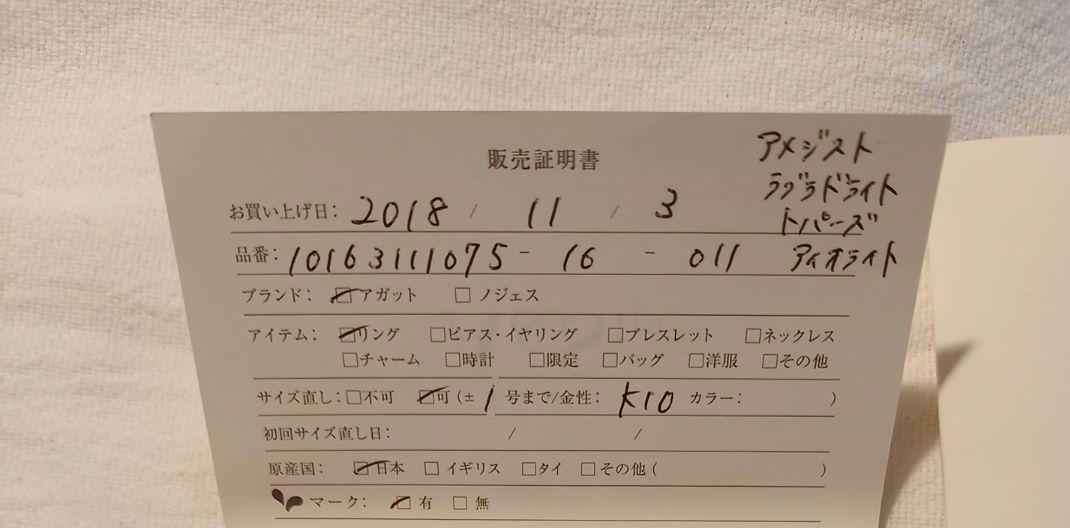 販売証明書
アメジスト
ラブラドライト
トパーズ
アイオライト
お買い上げ日: 2018 / 11 / 3
品番: 10163111075 - 16 - 011
ブランド: ☑アガット □ノジェス
アイテム: ☑リング □ピアス・イヤリング □ブレスレット □ネックレス
□チャーム □時計 □限定 □バッグ □洋服 □その他
サイズ直し: □不可 ☑可 (± 1 号まで/金性: K10 カラー: )
初回サイズ直し日: / /
原産国: ☑日本 □イギリス □タイ □その他 ( )
マーク: ☑有 □無